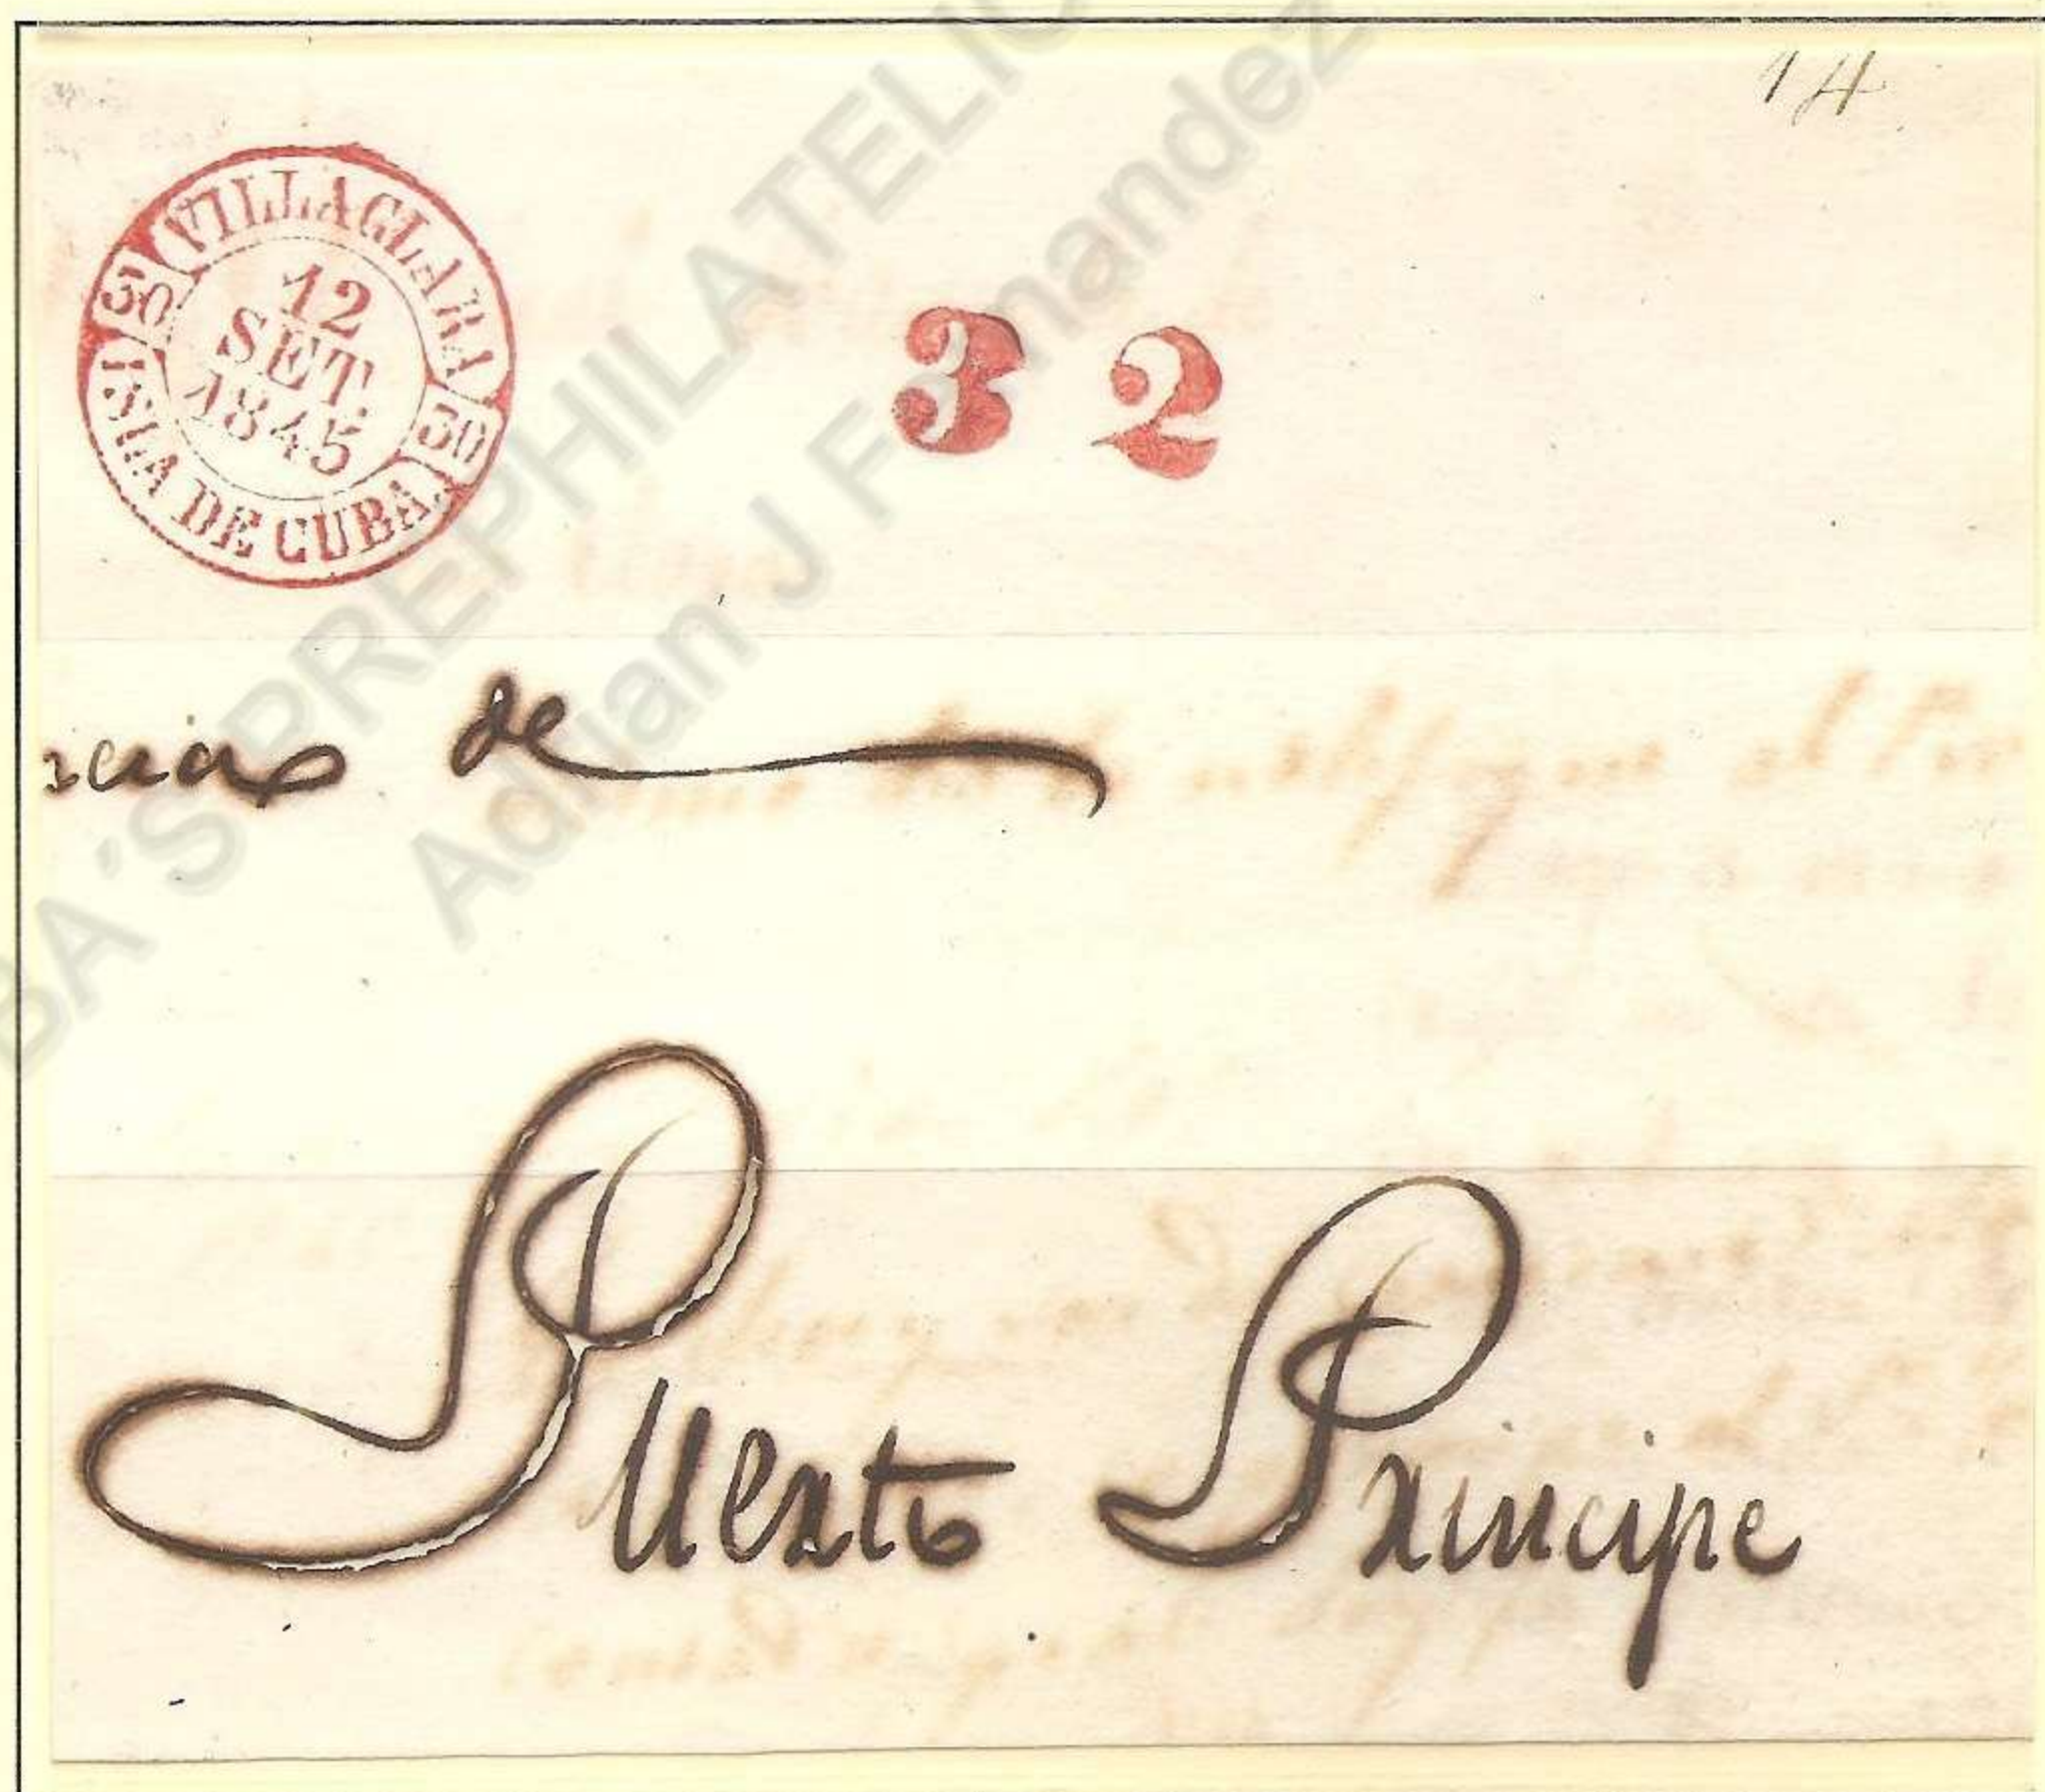 14
VILLACLARA
30 30
12
SET.
1845
ISLA DE CUBA.
3 2
de
Puerto Principe
BA´S PREPHILATELIC
Adrian J Fernandez